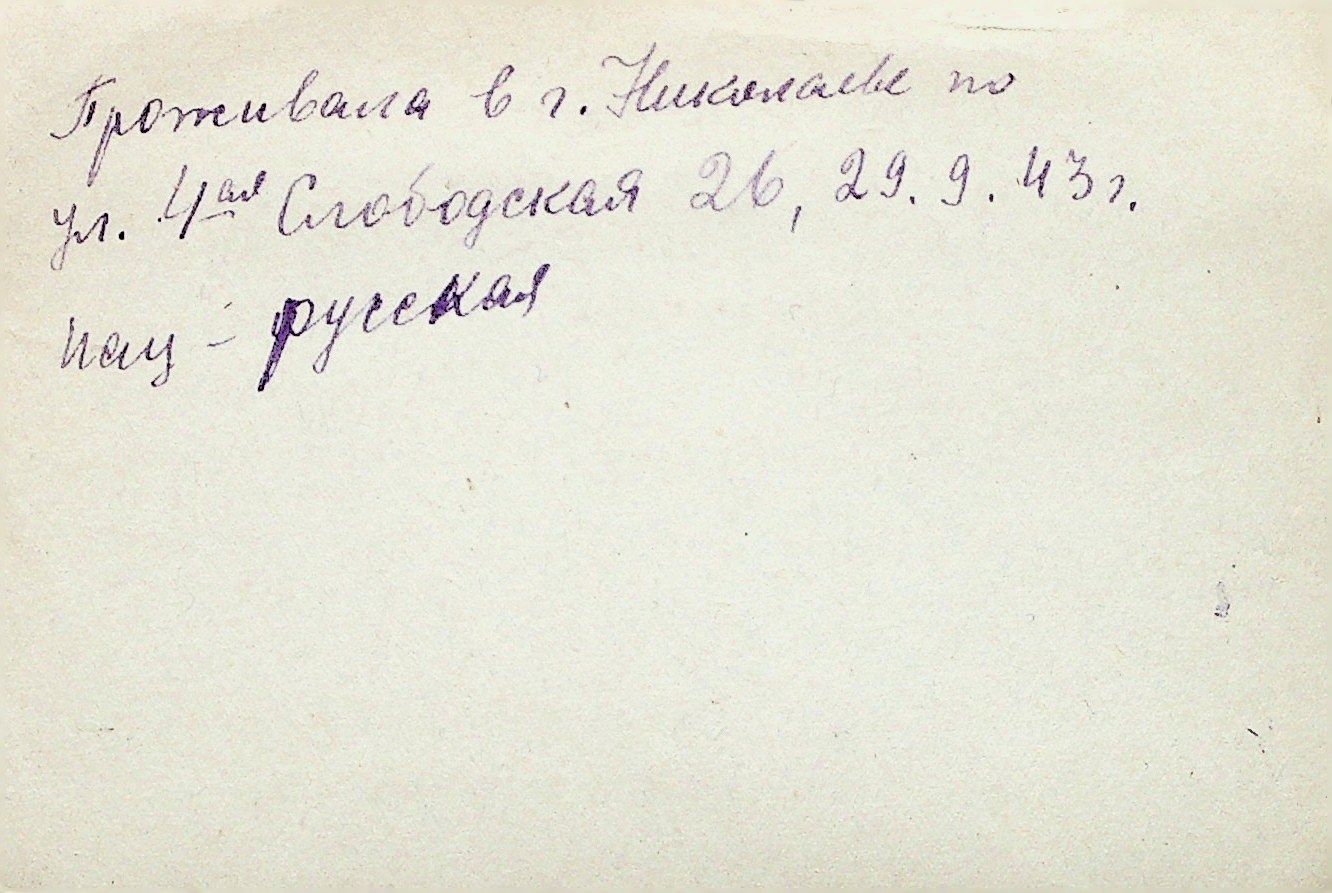 Проживала в г. Николаеве по
ул. 4ая Слободская 26, 29.9.43г.
нац - русская